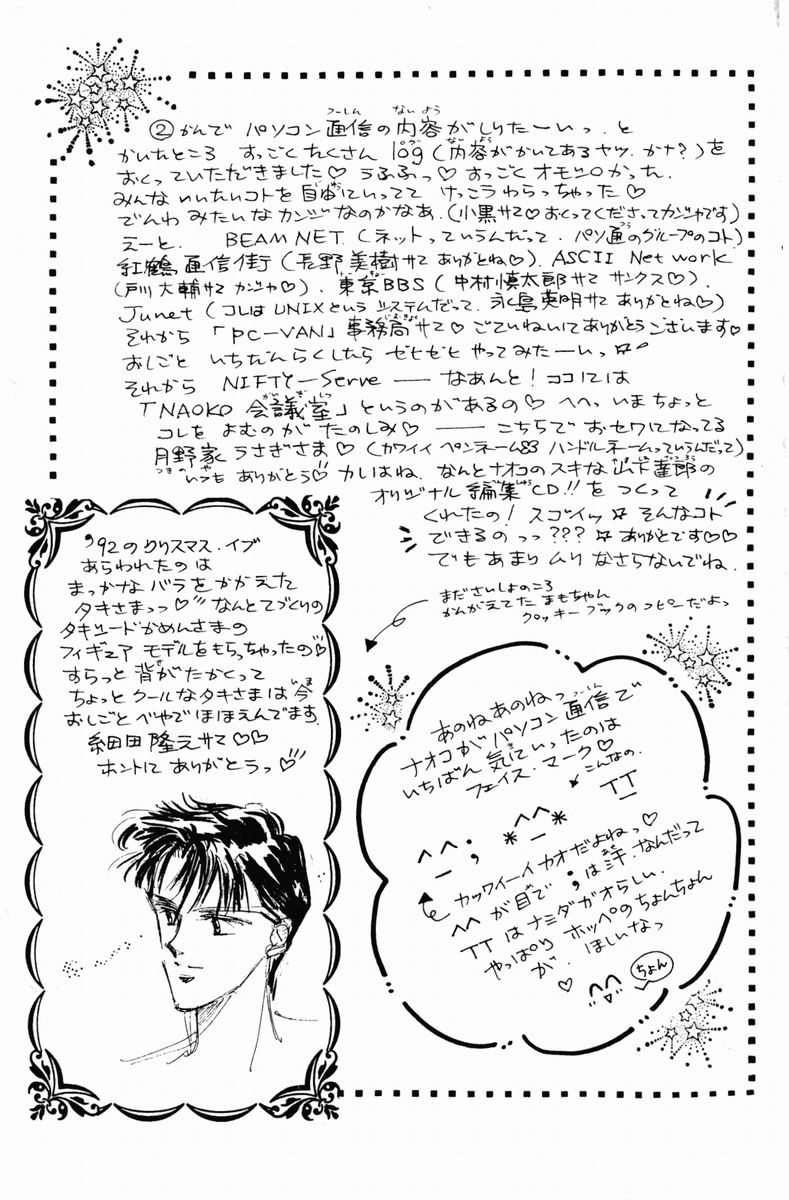 ②かんで パソコン通信の内容がしりたーいっ.と
つーしん ないよう
かいたところ すっごくたくさん log(内容がかいてあるヤツ.かナ?)を
ログ ないよう
おくっていただきました♡ うふふっ♡ すっごく オモシロかった.
みんな いいたいコトを自由にいってて けっこうわらっちゃった♡
じゆう
でんわ みたいな カンジなのかなあ.(小黒サマ♡おくってくださってカンシャです)
えーと. BEAM NET.(ネットっていうんだって.パソ通のグループのコト)
つう
紅鶴通信街(長野美樹サマ ありがとね♡).ASCII Net work
(戸川大輔サマ カンシャ♡).東京BBS(中村慎太郎サマ サンクス♡).
Junet(コレはUNIXという システムだって.永島英明サマ ありがとね♡)
それから「PC-VAN」事務局サマ♡ ごていねいにありがとうございます♡
じむきょく
おしごと いちだんらくしたら ゼヒゼヒ やってみたーいっ☆
それから NIFTY-Serve ── なあんと!ココには
「NAOKO 会議室」というのがあるの♡ へへっ いまちょっと
かいぎしつ
コレをよむのが たのしみ♡ ── こちらで おセワになってる
月野家うさぎさま♡(カワイイ ペンネーム ハンドルネームっていうんだって)
つきのや
いつも ありがとう♡ カレはね.なんとナオコのスキな 山下達郎の
オリジナル 編集CD!!を つくって
くれたの! スゴイッ☆ そんなコト
できるのっっ??? ☆ ありがとです♡♡
でもあまり ムリ なさらないでね.
まださいしょのころ
かんがえてた まもちゃん
クロッキーブックのコピーだよっ
'92のクリスマス.イブ
あらわれたのは
まっかな バラをかかえた
タキさまっっ♡ なんとてづくりの
タキシードかめんさまの
フィギュア モデルをもらっちゃったの♡
すらっと 背がたかくって
せ
ちょっとクールなタキさまは 今
いま
おしごと べやで ほほえんでます.
細田隆元サマ♡♡
ホントに ありがとうっ♡
あのねあのねっ
ナオコがパソコン通信で
つーしん
いちばん 気にいったのは
き
フェイス.マーク♡
こんなの.
T_T
^_^; *^_^*
カッワイーイ カオだよねっ♡
^^が目で ;は汗.なんだって
あせ
TTはナミダがオらしい.
やっぱり ホッペのちょんちょん
が. ほしいなっ
♡
ちょん